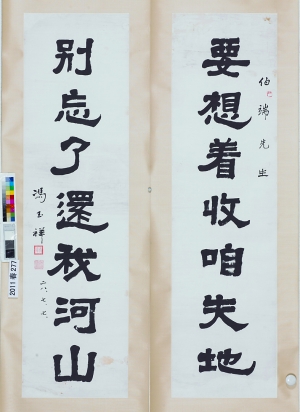 伯瑞先生
要想着收咱失地
别忘了還我河山
馮玉祥
六、七、七、
2011 春 277